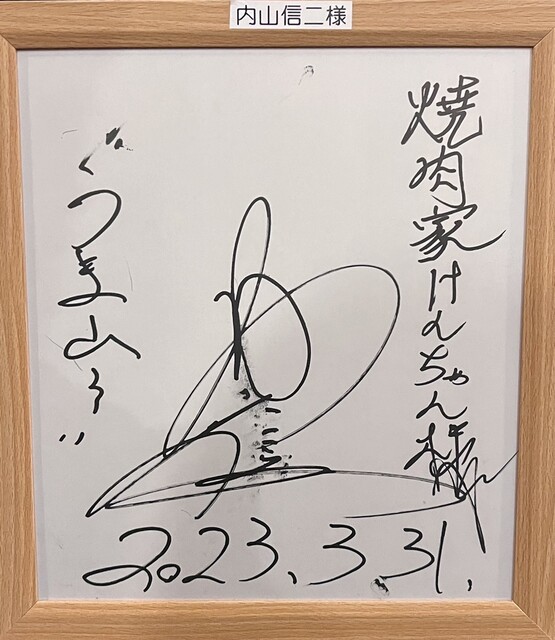 内山信二様
焼肉家けんちゃん様
"うま山う"
2023.3.31.